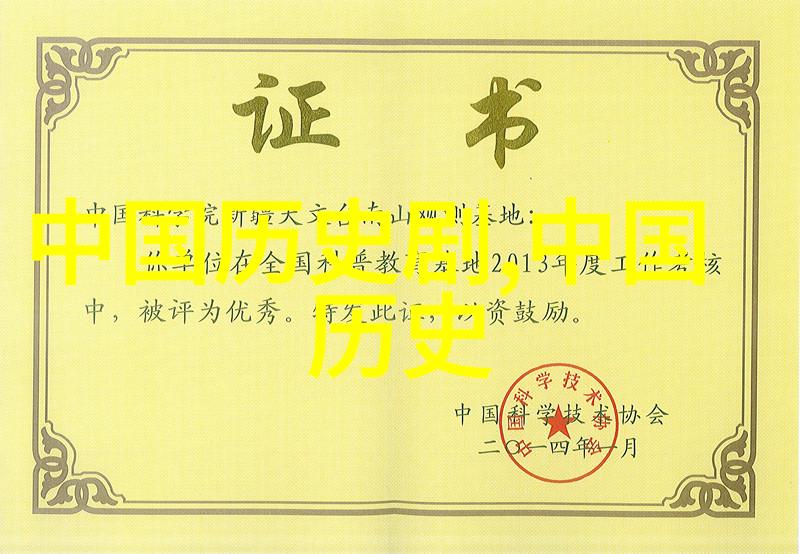 证 书
中国科学院新疆天文台南山观测基地:
中国历史剧,中国
你单位在全国科普教育基地2013年度工作考核
中，被评为优秀。特发此证，以资鼓励。
历史
中国科学技术协会
中国科学技术协会
二〇一四年一月